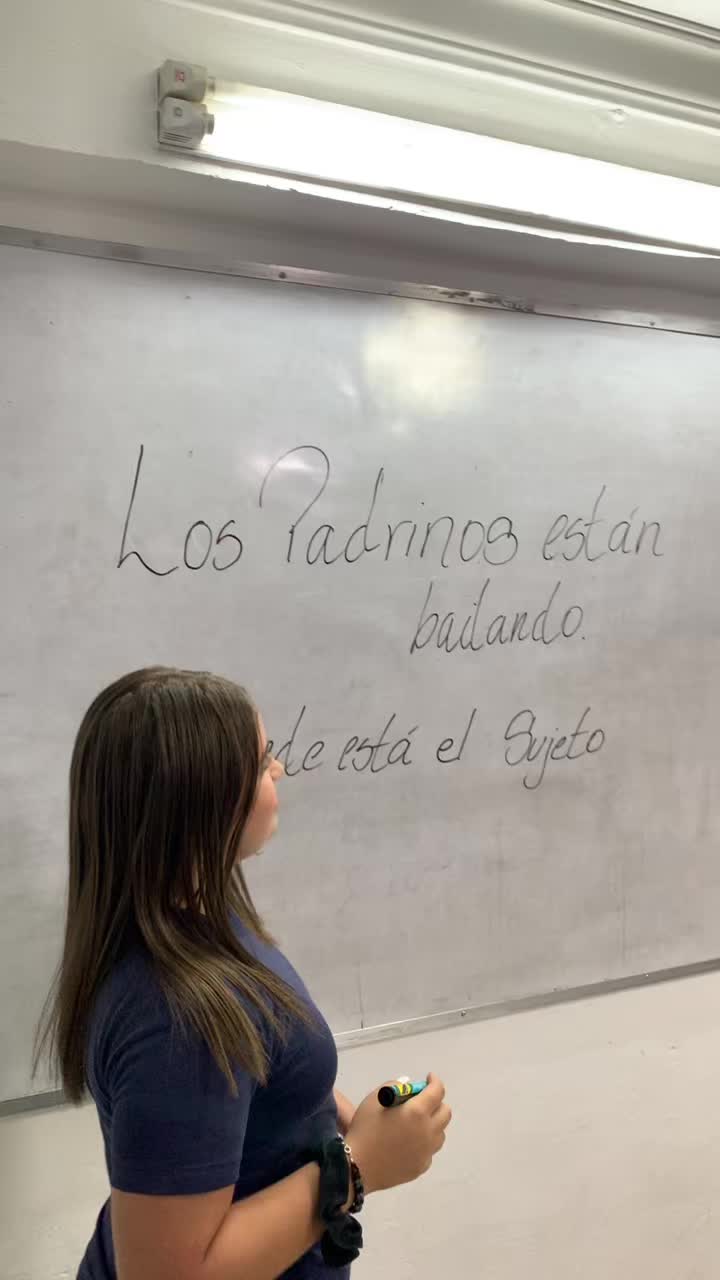 Los Padrinos están
bailando.
está el Sujeto